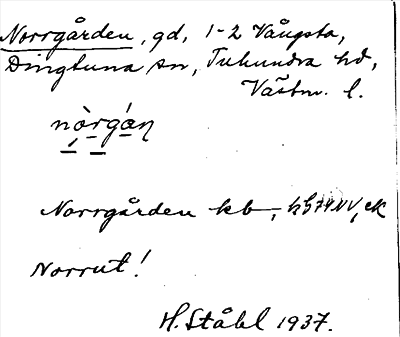 Norrgården, gd, 1-2 Vångsta,
Dingtuna sn, Tuhundra hd,
Västm. l.
nòrgán
Norrgården kb
Norrut!
H. Ståhl 1937.